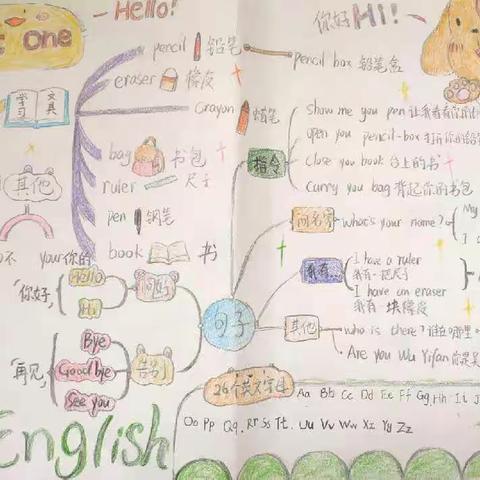 Hello!
你好 Hi!
One
学习
文具
pencil 铅笔
pencil box 铅笔盒
eraser 橡皮
crayon 蜡笔
bag 书包
ruler 尺子
pen 钢笔
book 书
其他
your 你的
指令
show me you pen 让我看看你的
open you pencil-box 打开你的铅
close you book 合上的书
carry you bag 背起你的书包
问名字
what's your name?
My
I
我有...
I have a ruler
我有一把尺子
I have an eraser
我有一块橡皮
其他
who is there? 谁在哪里
Are you Wu Yifan 你是吴
句子
你好,
Hello
Hi
问好
再见,
Bye
Goodbye
See you
告别
26个英文字母
Aa Bb Cc Dd Ee Ff Gg Hh Ii J
Oo Pp Qq Rr Ss Tt Uu Vv Ww Xx Yy Zz
English